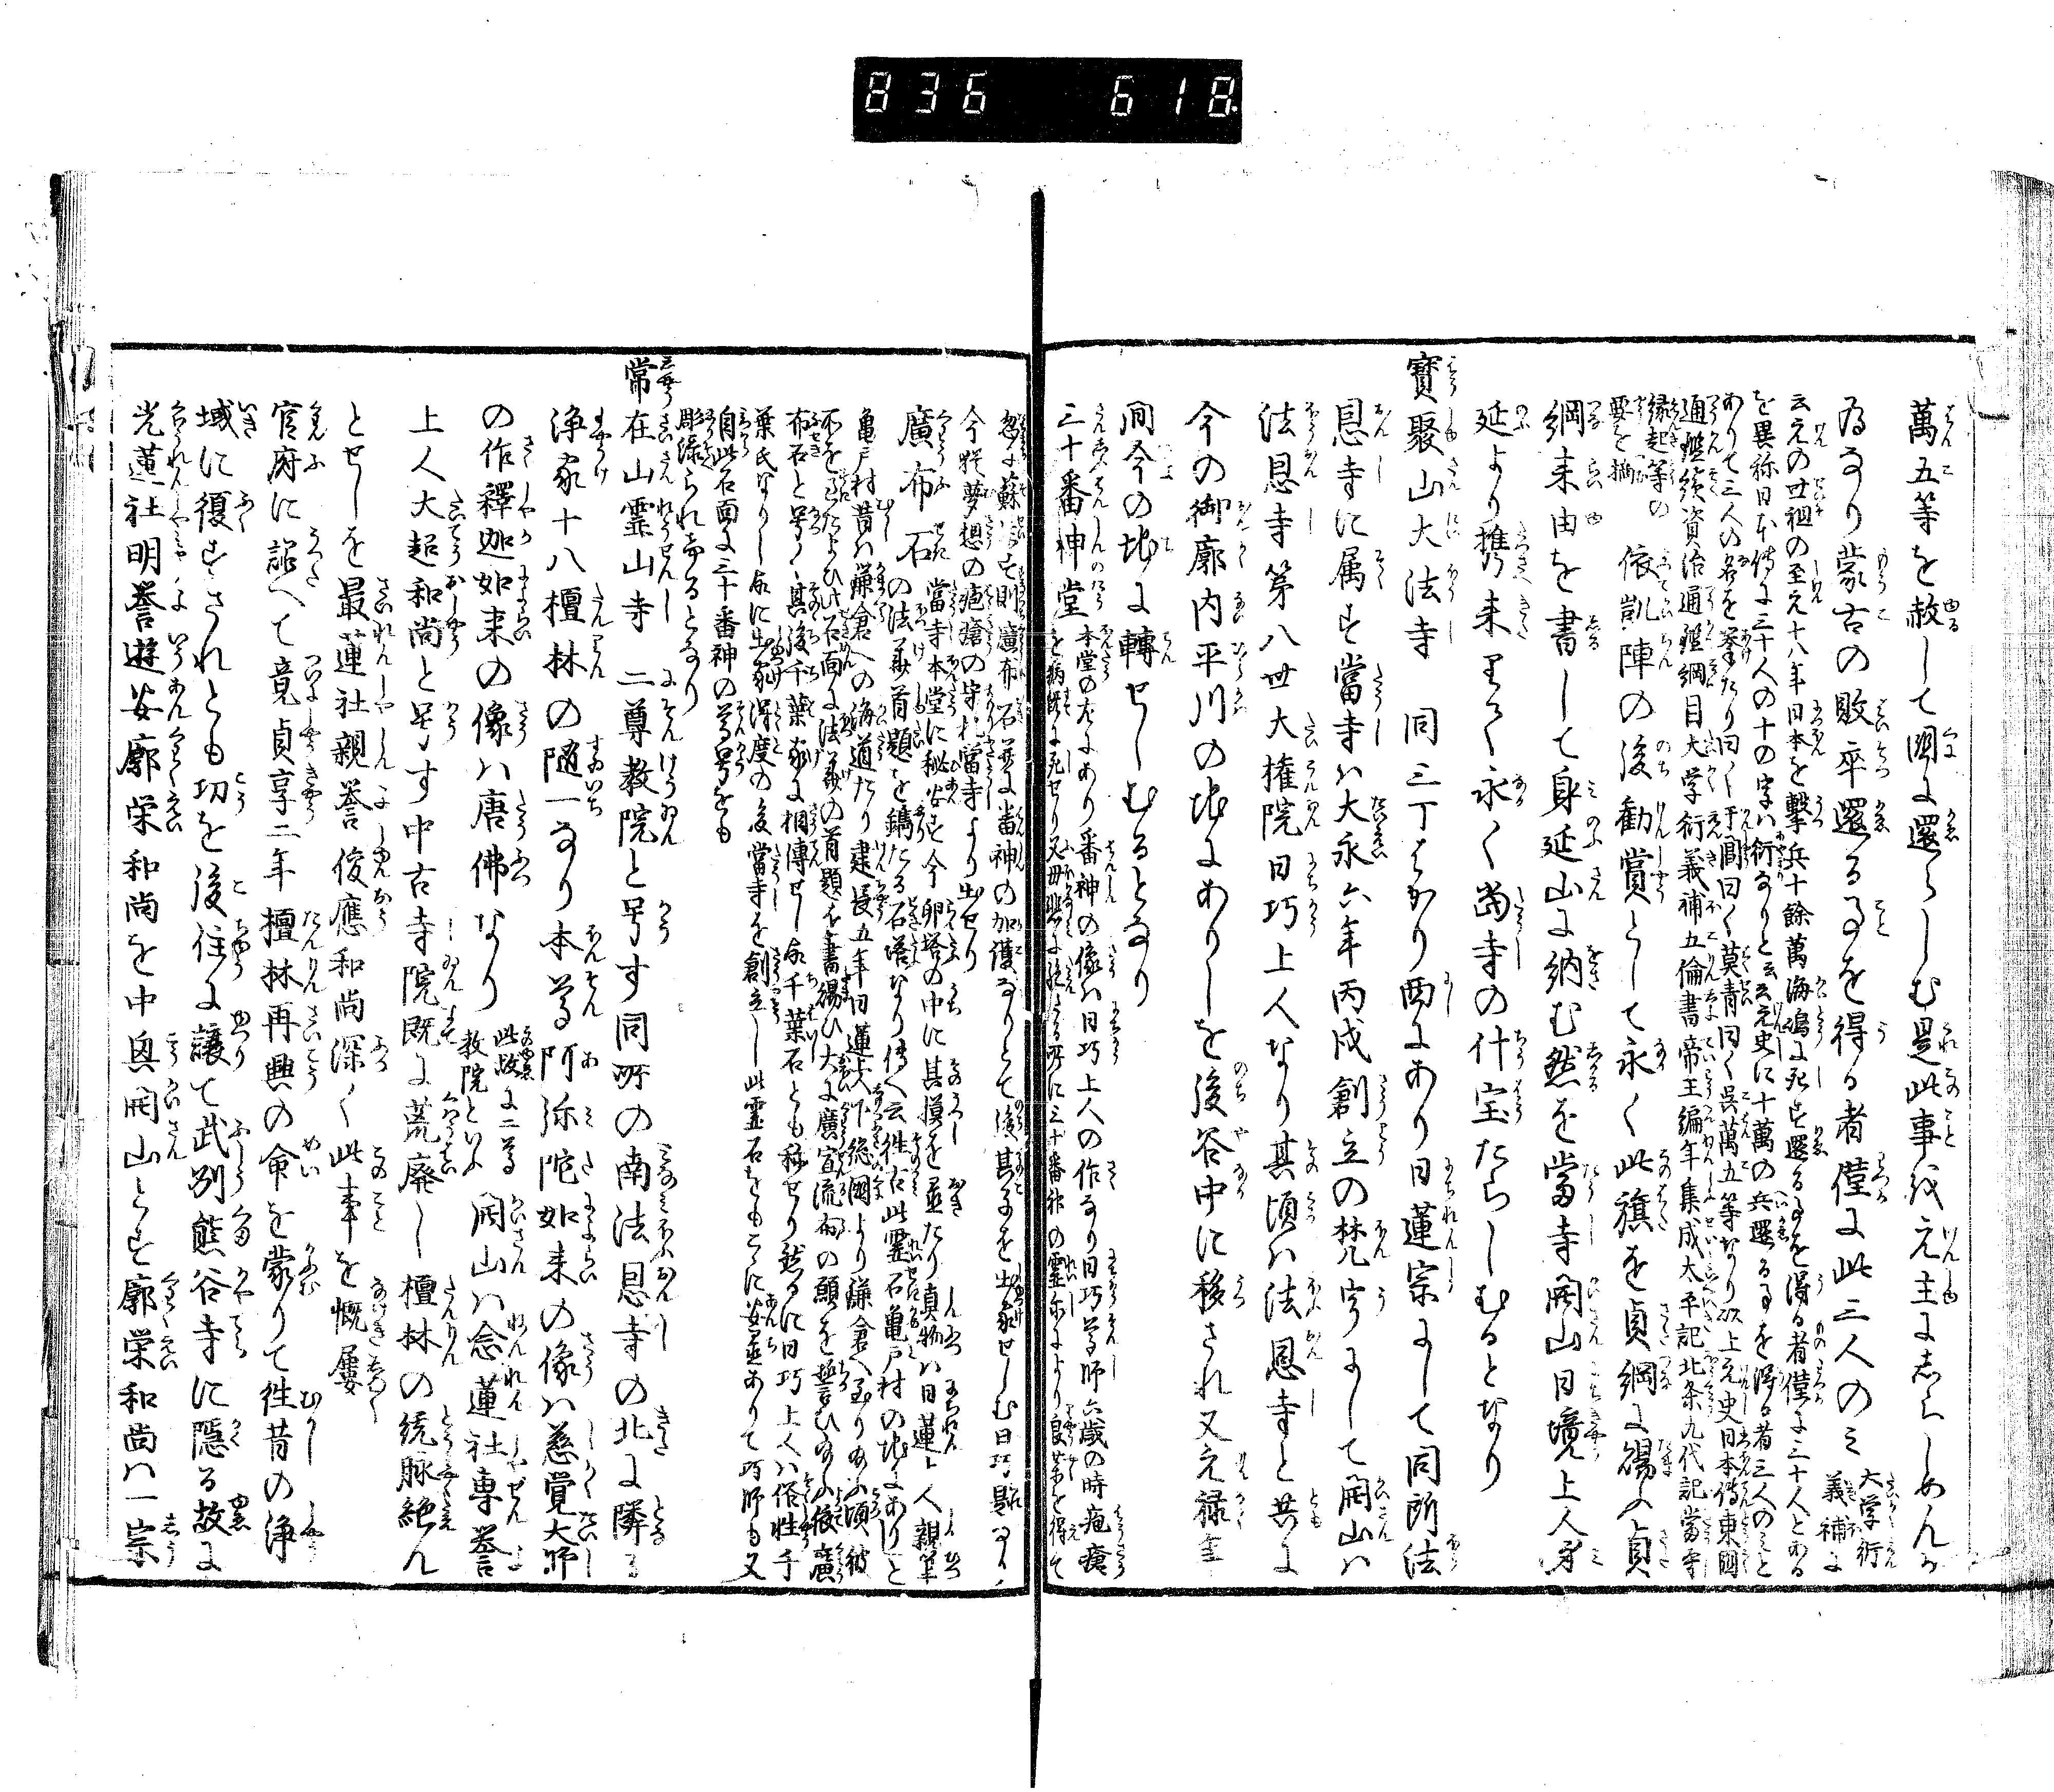 836 618
萬五等を赦して國に還らしむ是此事を元主にしらしめんか
為なり蒙古の敗卒還る事を得る者僅に此三人のミ 大学衍義補に
云元の世祖の至元十八年日本を撃兵十餘萬海嶋に死を還る事を得る者僅に三十人とある
を異称日本傳に三十人の十の字ハ衍なりと云云元史に十萬の兵還る事を得る者三人のミと
ありて三人の名を挙たり曰く于閶曰く莫青曰く呉萬五等なり以上元史日本傳東國
通鑑續資治通鑑綱目大学衍義補五倫書帝王編年集成太平記北条九代記當寺
縁起等の要を摘
依凱陣の後勸賞として永く此旗を貞綱に賜ふ貞
綱来由を書して身延山に納む然を當寺開山日境上人身
延より携来りて永く當寺の什宝たらしむるとなり
寳聚山大法寺 同三丁はかり西にあり日蓮宗にして同所法
恩寺に属す當寺ハ大永六年丙戌創立の梵宇にして開山ハ
法恩寺第八世大権院日巧上人なり其頃ハ法恩寺と共に
今の御廓内平川の地にありしを後谷中に移され又元禄年
間今の地に轉せしむるとなり
三十番神堂 本堂の左にあり番神の像ハ日巧上人の作なり日巧尊師六歳の時疱瘡
を病既に死せり父母 に三十番神の霊示により良薬を得て
忽に蘇す則廣布石并に番神の加護なりとて後其子を出家せしむ日巧是なり
今に夢想の疱瘡の守札當寺より出せり
廣布石 當寺本堂に秘安す今卵塔の中に其摸を置たり真物ハ日蓮上人親筆
の法華首題を鐫たる石塔なり傳へ云往古此霊石亀戸村の地にありと
亀戸村昔ハ鎌倉への海道たり建長五年日蓮大下總國より鎌倉へ至りたまふ頃彼
布石と号く其後千葉家に相傳せし故千葉石とも称せり然るに日巧上人ハ俗姓千
葉氏なりし故に出家得度の後當寺を創立し此霊石をもこゝに安置ありて巧師も又
自此石面に三十番神の尊号をも
彫添られけるとなり
常在山霊山寺 二尊教院と号す同所の南法恩寺の北に隣る
浄家十八檀林の随一なり本尊阿弥陀如来の像ハ慈覚大師
の作釋迦如来の像ハ唐佛なり 此故に二尊教院といふ 開山ハ念蓮社専誉
上人大超和尚と号す中古寺院既に荒廃し檀林の統脉絶ん
とせしを最蓮社親誉俊應和尚深く此事を慨屢
官府に訟へて竟貞享二年檀林再興の命を蒙りて往昔の浄
域に復すされとも功を後住に譲て武列熊谷寺に隠る故に
光蓮社明誉遊安廓栄和尚を中興開山とす廓栄和尚ハ一宗